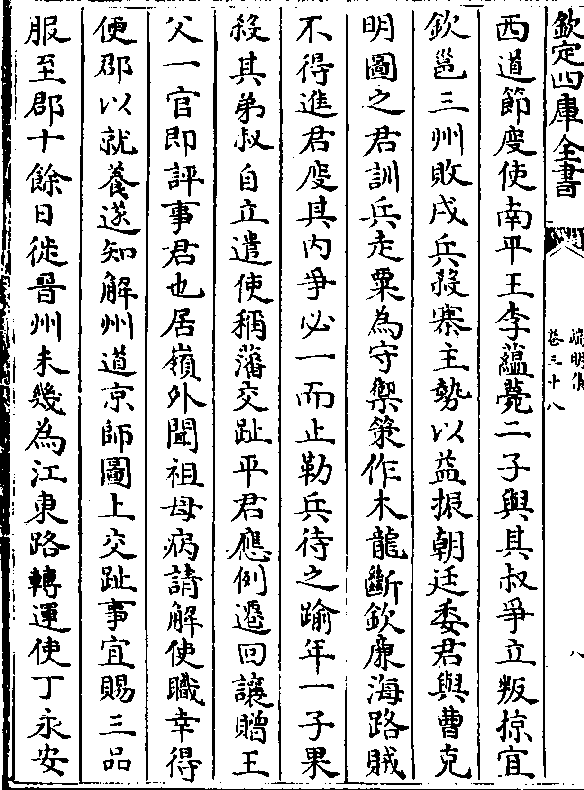 欽定四庫全書
卷三十八
八
西道節度使南平王李蘊薨二子與其叔爭立叛掠宜
欽邕三州敗戍兵殺寨主勢以益振朝廷委君與曹克
明圖之君訓兵走粟為守禦策作木龍斷欽廉海路賊
不得進君度其内爭必一而止勒兵待之踰年一子果
殺其弟叔自立遣使稱藩交趾平君應例遷回讓贈王
父一官即評事君也居嶺外聞祖母病請解使職幸得
便郡以就養遂知解州道京師圖上交趾事宜賜三品
服至郡十餘日徙晉州未幾為江東路轉運使丁永安